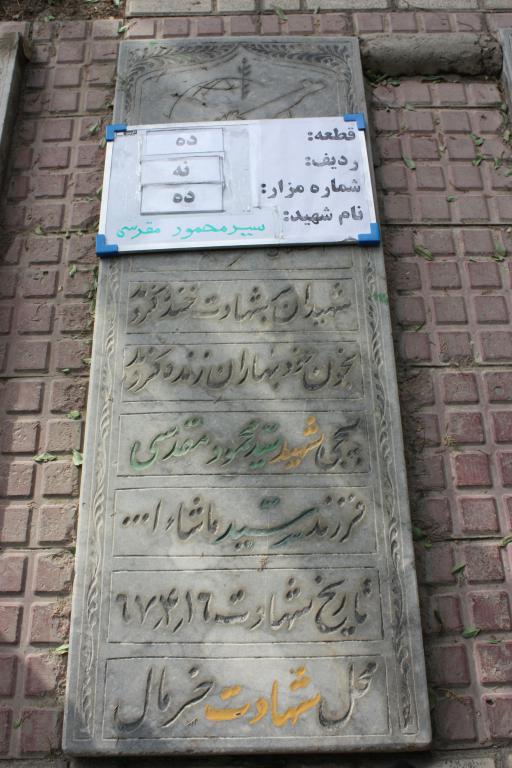 قطعه: ده
ردیف: نه
شماره مزار: ده
نام شهید: سیدمحمود مقدسی
شهیدان کز شهادت خنده کردند
بخون خود بهاران زنده کردند
بسیجی شهید سید محمود مقدسی
فرزند سید ماشاءا...
تاریخ شهادت ۶۷٫۴٫۱۶
محل شهادت خرمال